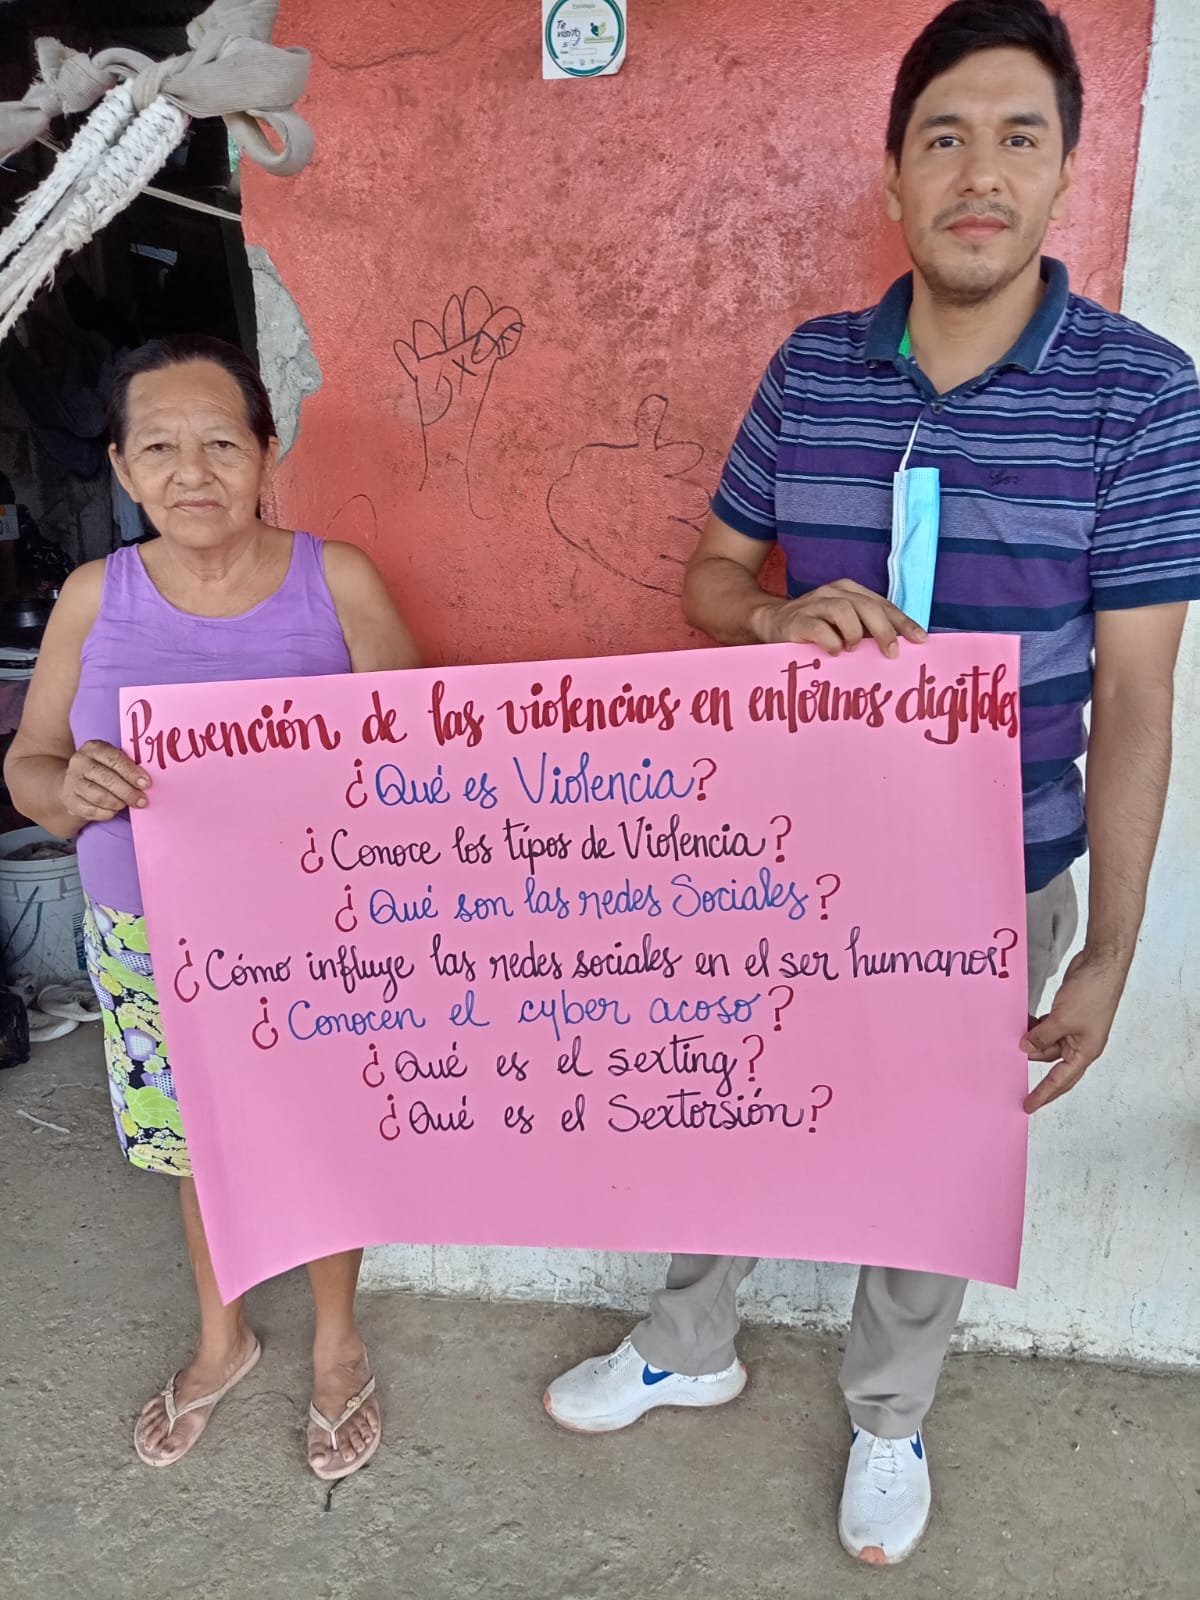 Te
visito
sí
Prevención de las violencias en entornos digitales
¿Qué es Violencia?
¿Conoce los típos de Violencia?
¿Qué son las redes Sociales?
¿Cómo influye las redes sociales en el ser humanos?
¿Conocen el cyber acoso?
¿Qué es el sexting?
¿Qué es el Sextorsión?